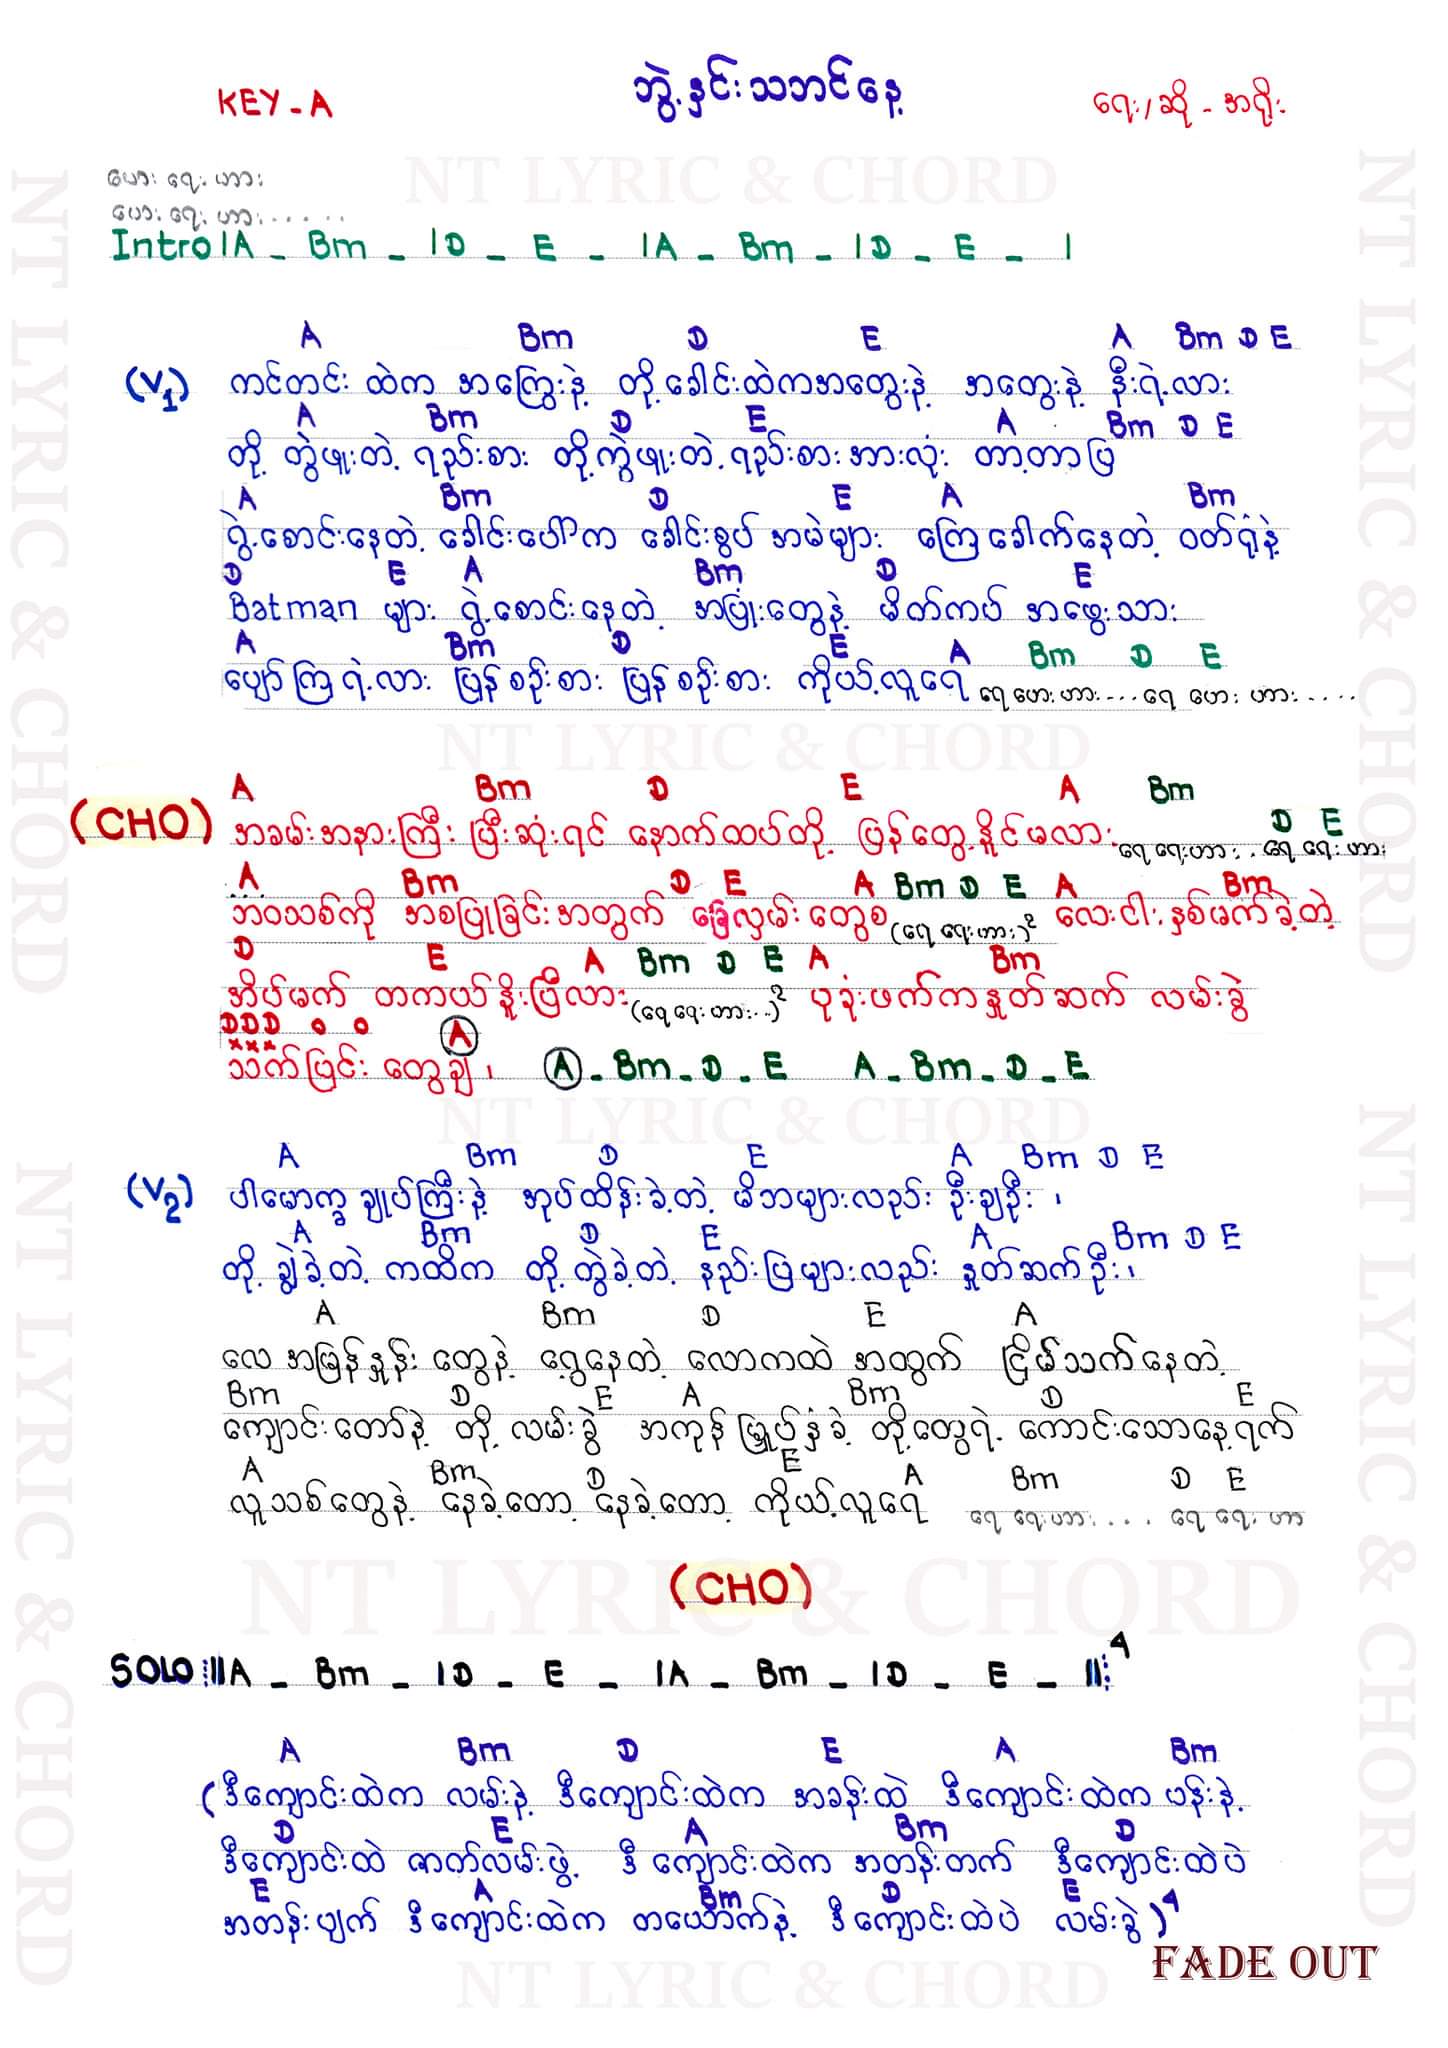 KEY - A
ဘွဲ့နှင်းသဘင်နေ့
ရေး/ဆို - အရိုး
ဟေး ရေး ဟား
ဟေး ရေး ဟား.....
Intro | A - Bm - | D - E - | A - Bm - | D - E - |
A Bm D E A Bm D E
(V1) ကင်တင်း ထဲက အကြွေးနဲ့ တို့ခေါင်းထဲကအတွေးနဲ့ အတွေးနဲ့ နီးရဲ့လား
A Bm D E A Bm D E
တို့ တွဲဖူးတဲ့ ရည်းစား တို့ကွဲဖူးတဲ့ ရည်းစားအားလုံး တာ့တာပြ
A Bm D E A Bm
ရွဲ့စောင်းနေတဲ့ ခေါင်းပေါ်က ခေါင်းစွပ် အမဲများ ကြေခေါက်နေတဲ့ ဝတ်ရုံနဲ့
D E A Bm D E
Batman များ ရွဲ့စောင်းနေတဲ့ အပြုံးတွေနဲ့ မိတ်ကပ် အဖွေးသား
A Bm D E A Bm D E
ပျော်ကြရဲ့လား ပြန်စဉ်းစား ပြန်စဉ်းစား ကိုယ့်လူရေ ရေ ဟေးဟား... ရေ ဟေး ဟား....
A Bm D E A Bm
(CHO) အခမ်းအနားကြီး ပြီးဆုံးရင် နောက်ထပ်တို့ ပြန်တွေ့နိူင်မလား
D E
ရေ ရေးဟား.. ရေ ရေး ဟား
A Bm D E A Bm D E A Bm
ဘဝသစ်ကို အစပြုခြင်းအတွက် ခြေလှမ်းတွေစ (ရေ ရေးဟား)2 လေးငါးနှစ်မက်ခဲ့တဲ့
D E A Bm D E A Bm
အိပ်မက် တကယ်နိူးပြီလား (ရေရေးဟား..)2 ပုခုံးဖက်ကနှုတ်ဆက် လမ်းခွဲ
D D D o o A
x x x
သက်ပြင်း တွေချ၊ A - Bm - D - E A - Bm - D - E
A Bm D E A Bm D E
(V2) ပါမောက္ခချုပ်ကြီးနဲ့ အုပ်ထိန်းခဲ့တဲ့ မိဘများလည်း ဦးချဦး၊
A Bm D E A Bm D E
တို့ ချွဲခဲ့တဲ့ ကထိက တို့ တွဲခဲ့တဲ့ နည်းပြများလည်း နှုတ်ဆက်ဦး၊
A Bm D E A
လေ အမြန်နှုန်း တွေနဲ့ ရွေ့နေတဲ့ လောကထဲ အထွက် ငြိမ်သက်နေတဲ့
Bm D E A Bm D E
ကျောင်းတော်နဲ့ တို့ လမ်းခွဲ အကုန် မြှုပ်နှံခဲ့ တို့တွေရဲ့ ကောင်းသောနေ့ရက်
A Bm D E A Bm D E
လူသစ်တွေနဲ့ နေခဲ့တော့ နေခဲ့တော့ ကိုယ့်လူရေ ရေ ရေးဟား.... ရေ ရေး ဟာ
(CHO)
SOLO :|| A - Bm - | D - E - | A - Bm - | D - E - ||: 4
A Bm D E A Bm
(ဒီကျောင်းထဲက လမ်းနဲ့ ဒီကျောင်းထဲက အခန်းထဲ ဒီကျောင်းထဲက ပန်းနဲ့
D E A Bm D
ဒီကျောင်းထဲ ဇာတ်လမ်းဖွဲ့ ဒီ ကျောင်းထဲက အတန်းတက် ဒီကျောင်းထဲပဲ
E A Bm D E
အတန်းပျက် ဒီကျောင်းထဲက တယောက်နဲ့ ဒီကျောင်းထဲပဲ လမ်းခွဲ)4
FADE OUT
NT LYRIC & CHORD